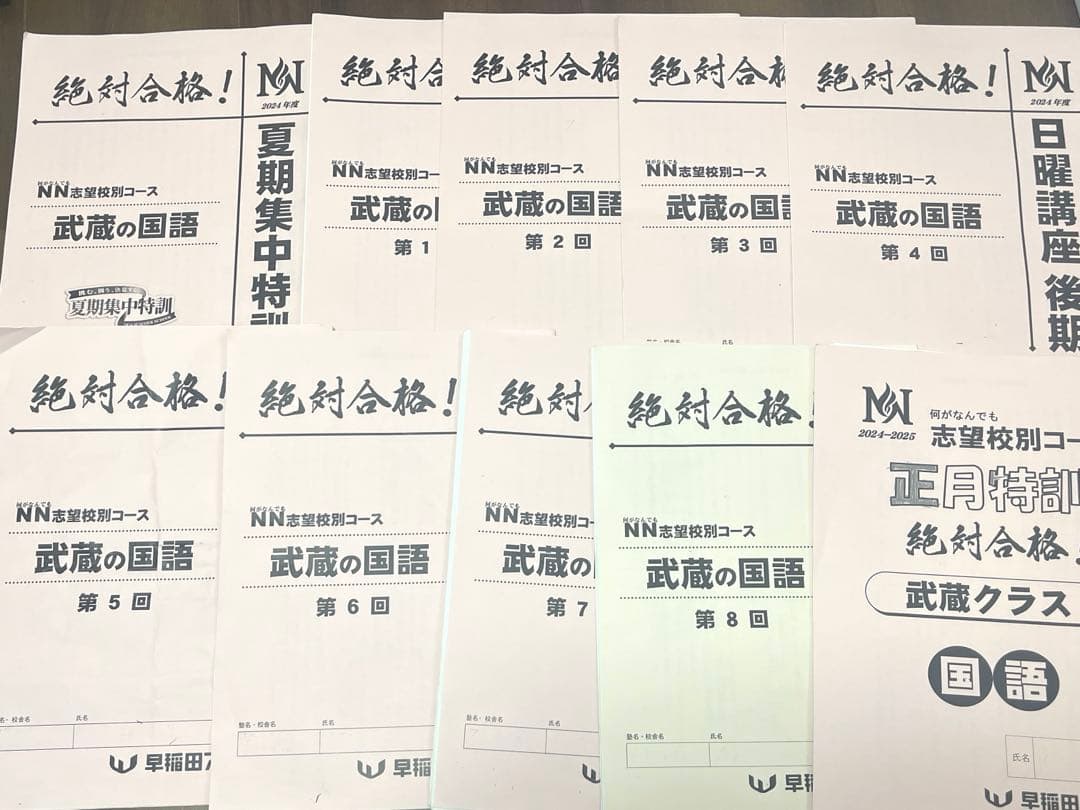 絶対合格！
NN
2024年度
夏期集中特訓
何がなんでも
NN志望校別コース
武蔵の国語
挑む、闘う、決意する。
夏期集中特訓
絶対合
何がなんでも
NN志望校別コー
武蔵の
第1
絶対合格
何がなんでも
NN志望校別コース
武蔵の国語
第2回
絶対合格
何がなんでも
NN志望校別コース
武蔵の国語
第3回
氏名
絶対合格！
NN
2024年度
日曜講座 後期
何がなんでも
NN志望校別コース
武蔵の国語
第4回
絶対合格！
何がなんでも
NN志望校別コース
武蔵の国語
第5回
塾名・校舎名
氏名
早稲田ア
絶対合格！
何がなんでも
NN志望校別コース
武蔵の国語
第6回
塾名・校舎名
氏名
早稲
絶対
何がなんでも
NN志望校別コー
武蔵の
第7
塾名・校舎名
氏名
絶対合格！
何がなんでも
NN志望校別コース
武蔵の国語
第8回
塾名・校舎名
氏名
早
NN
2024–2025
何がなんでも
志望校別コー
正月特訓
絶対合格！
武蔵クラス
国語
氏名
早稲田